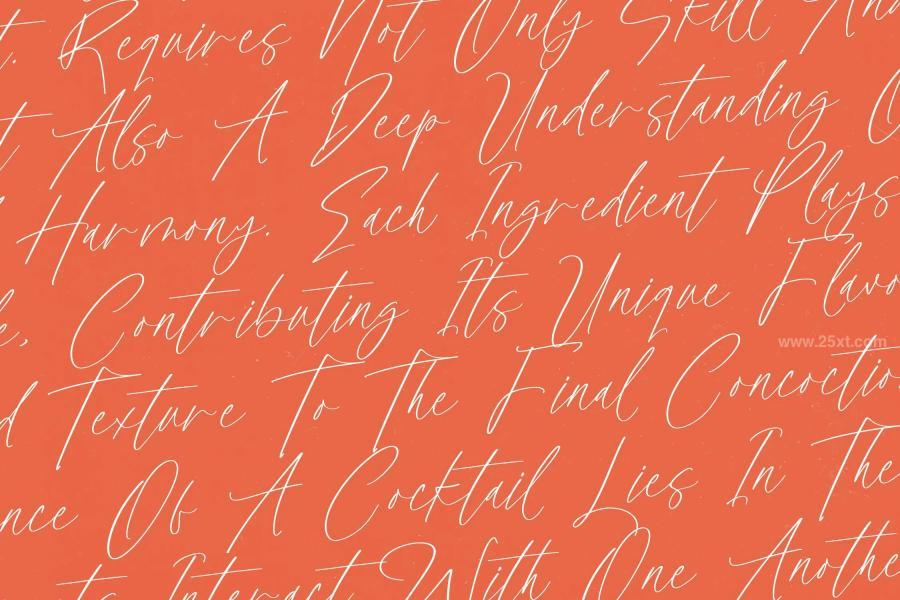 t. Requires Not Only Skill And
t Also A Deep Understanding O
Harmony. Each Ingredient Plays
e, Contributing Its Unique Flavo
www.25xt.com
d Texture To The Final Concoctio
nce Of A Cocktail Lies In The
ts Interact With One Anothe